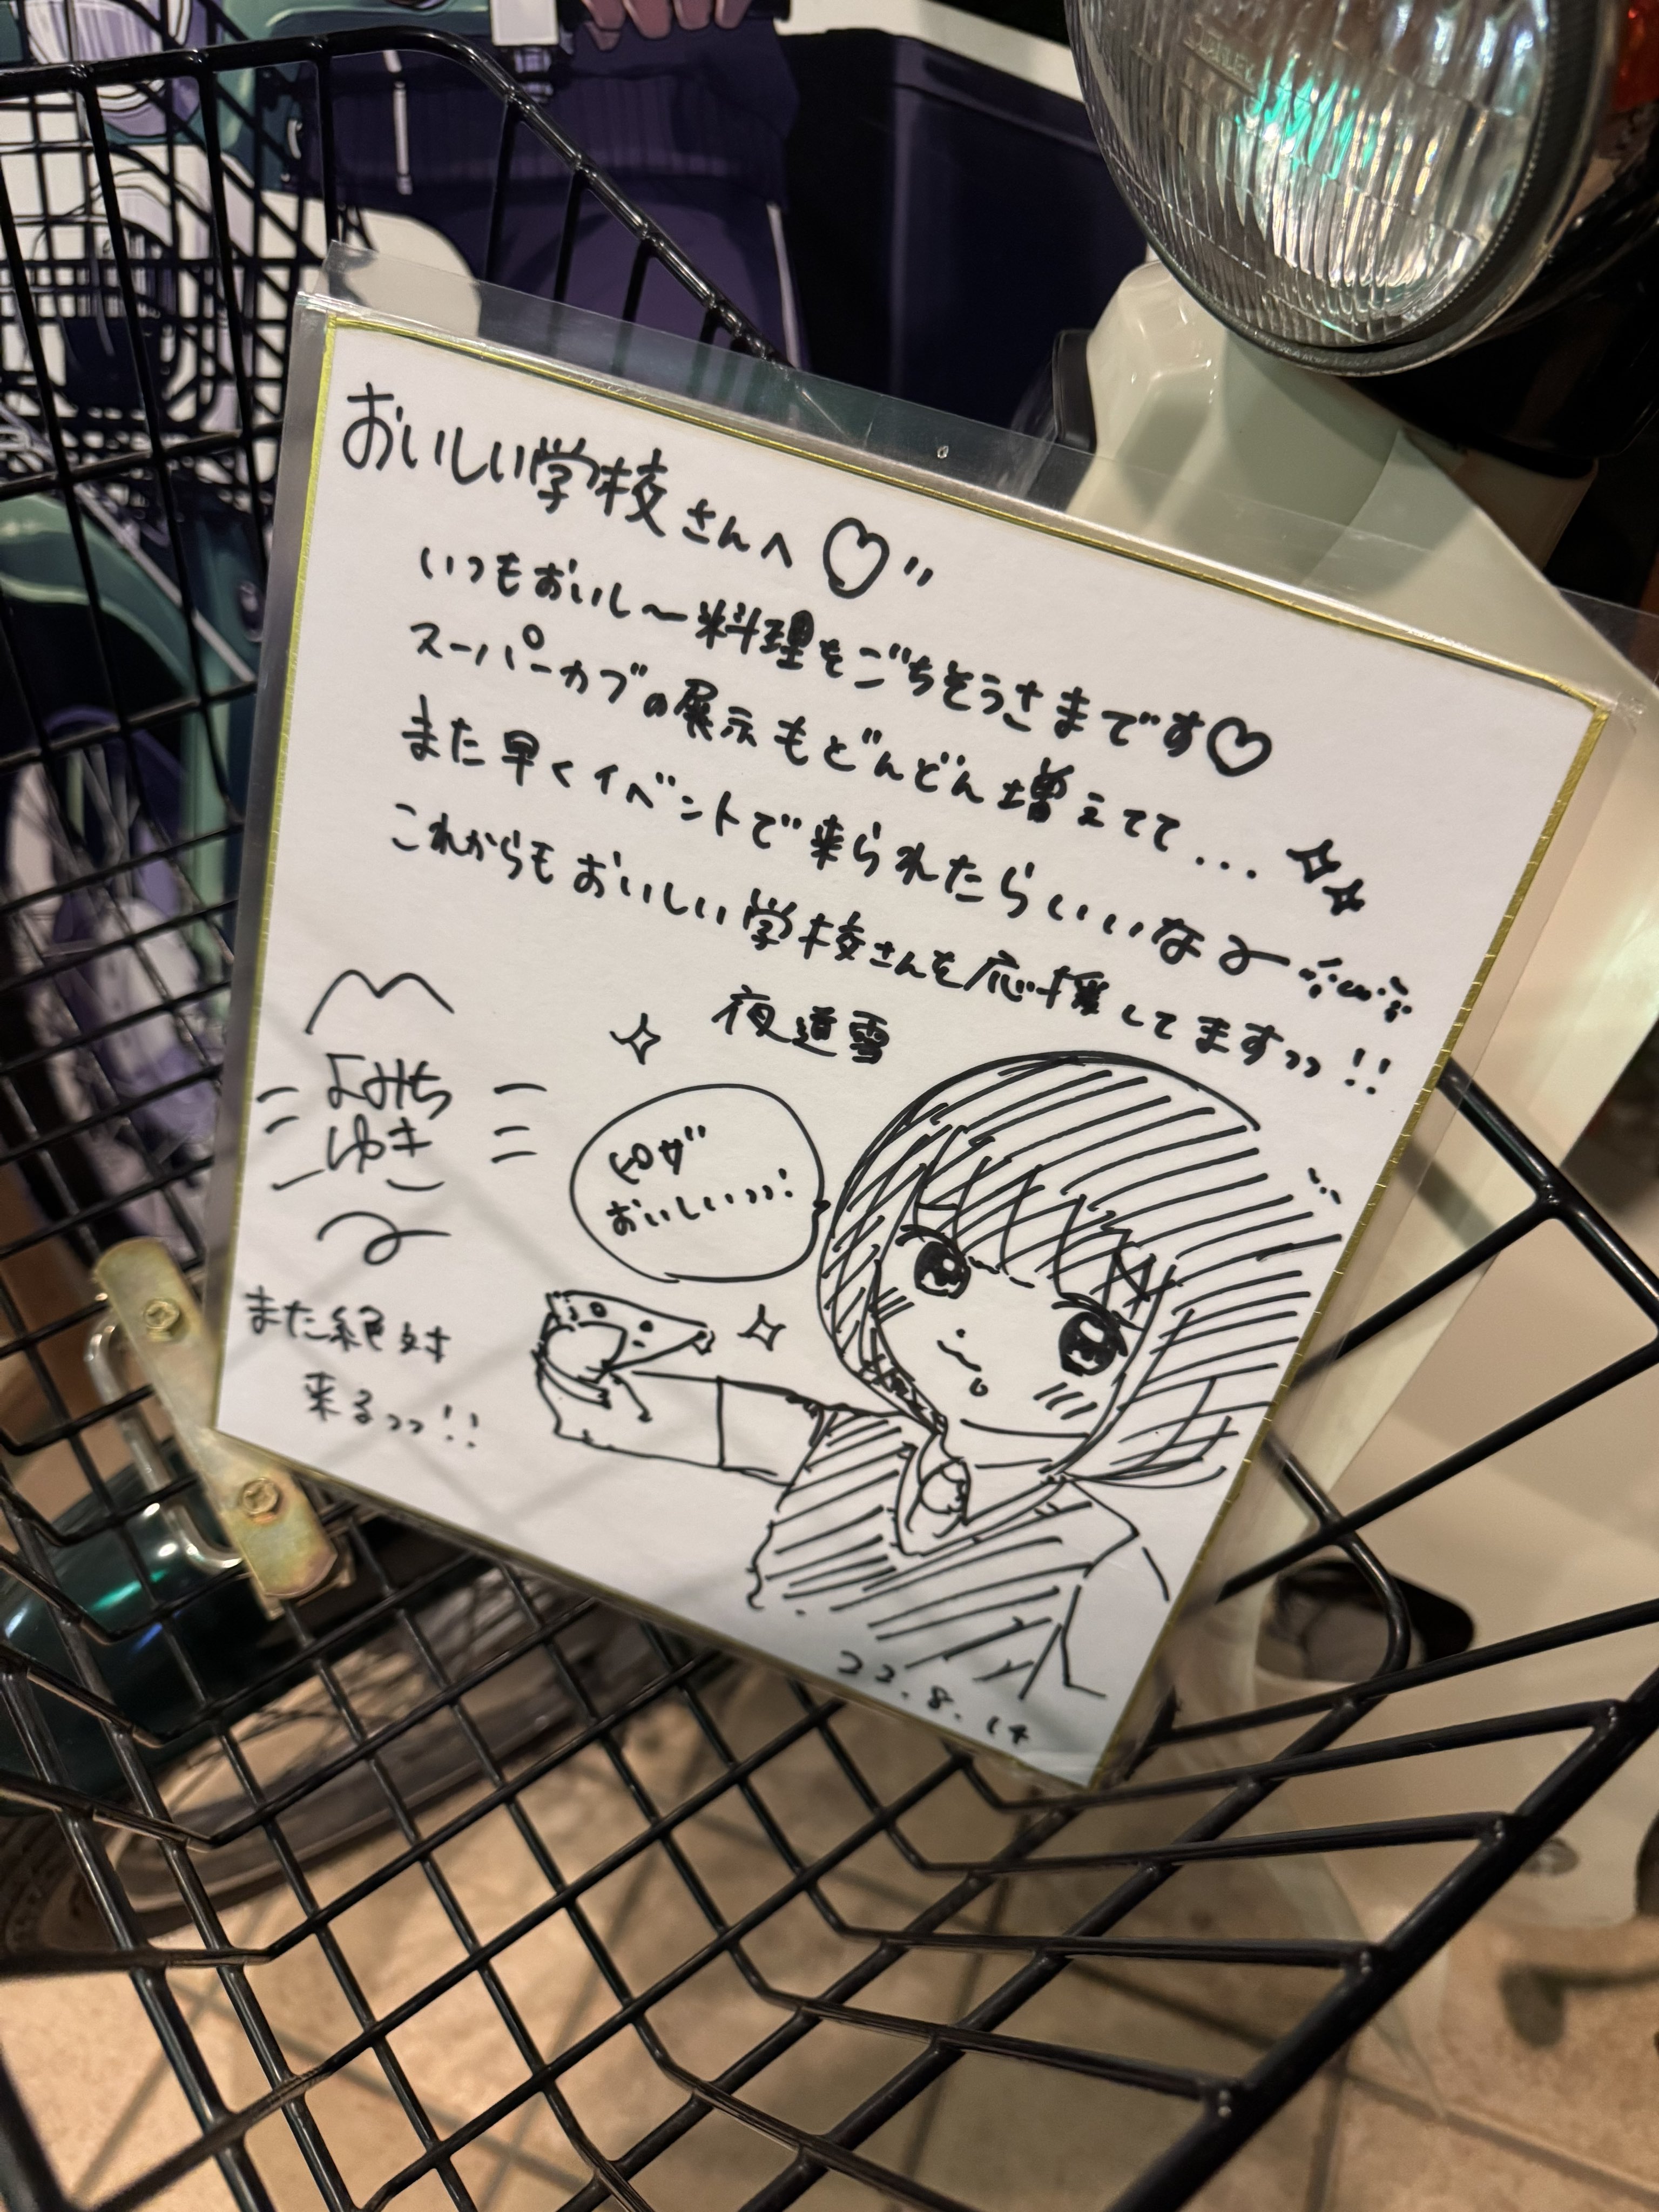 おいしい学校さんへ♡"
いつもおいし〜料理をごちそうさまです♡
スーパーカブの展示もどんどん増えてて...
また早くイベントで来られたらいいな〜
これからもおいしい学校さんを応援してますっっ!!
夜道雪
よみち
ゆき
ピザ
おいしいっっ!
また絶対
来るっっ!!
22.8.14